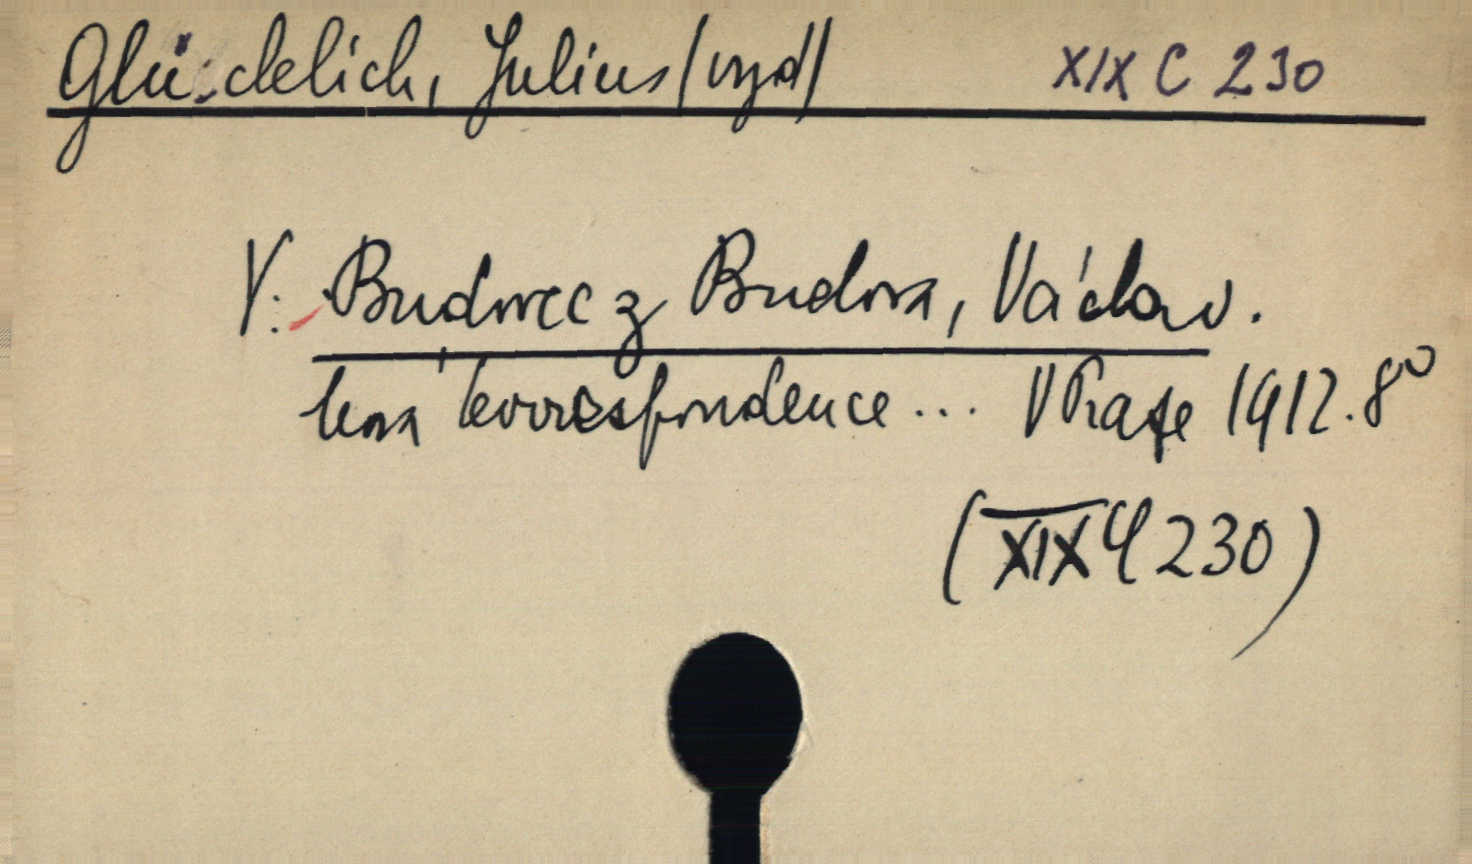 Glücklich, Julius (vyd)
XIX C 230
V: Budovec z Budova, Václav.
korrespondence ... V Praze 1912. 8°
(XIX C 230)